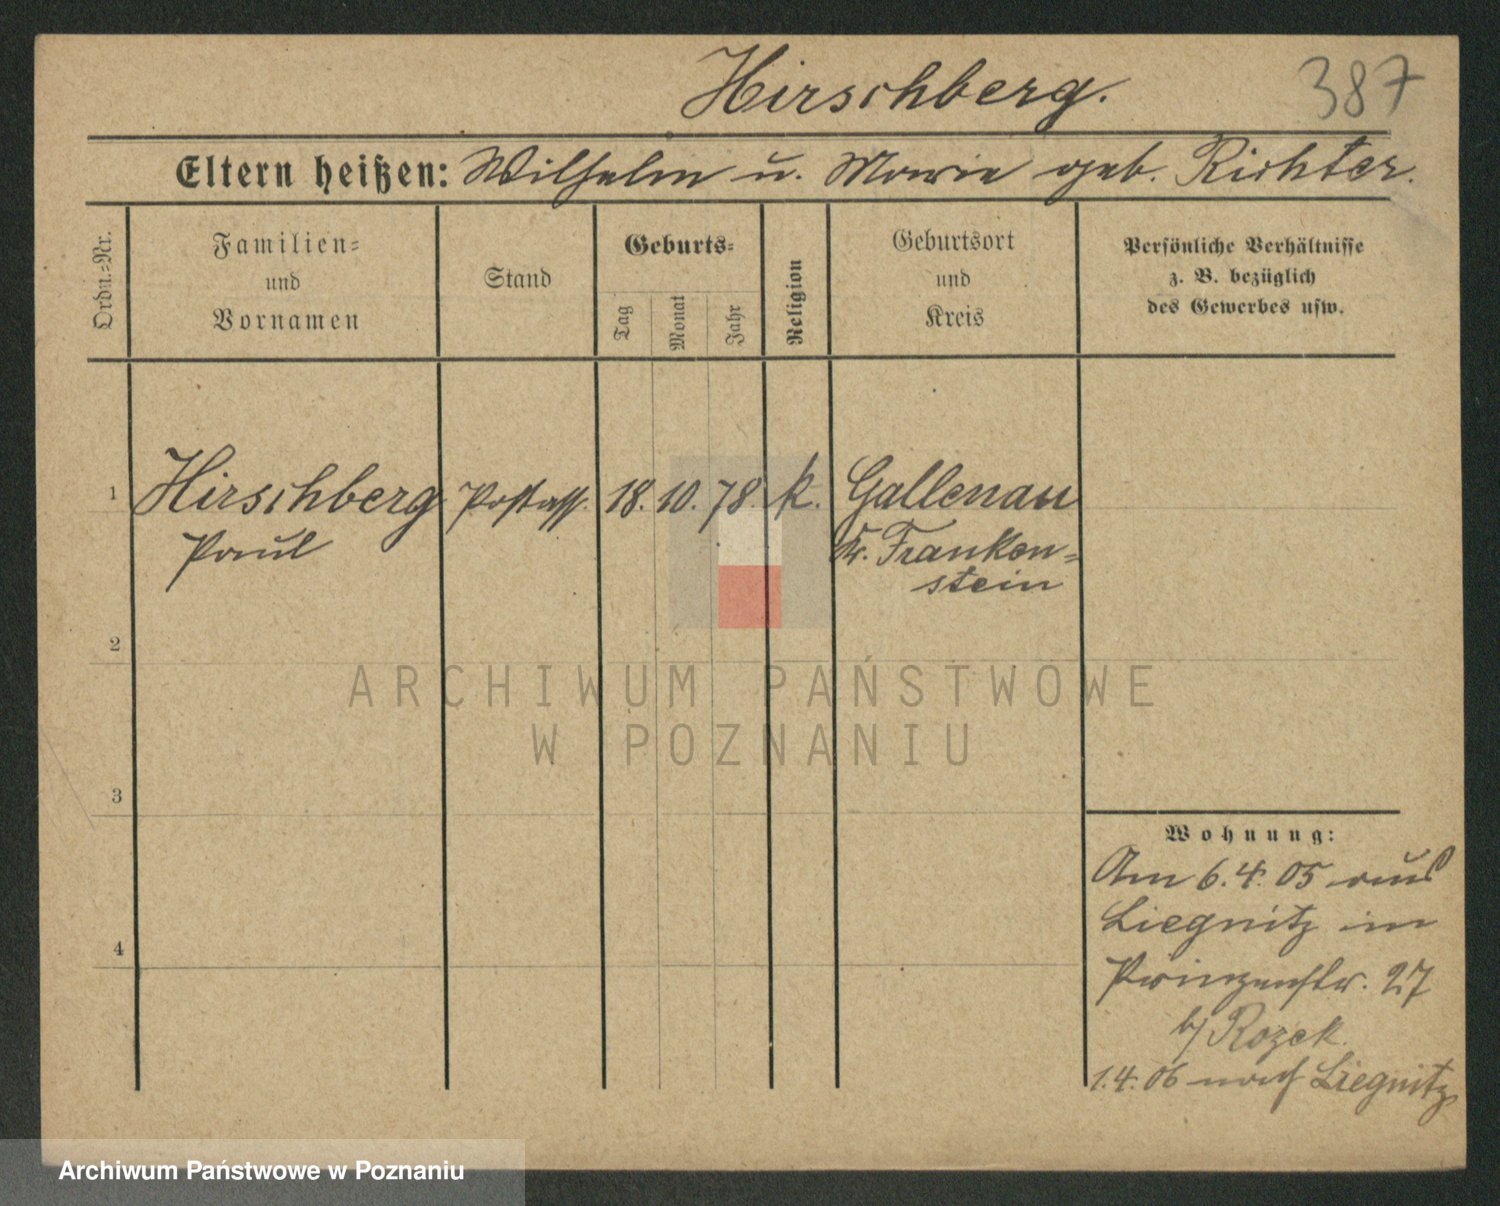 Hirschberg.
387
Eltern heißen: Wilhelm u. Marie geb. Richter.
Ordn.-Nr.
Familien-
und
Vornamen
Stand
Geburts-
Tag
Monat
Jahr
Religion
Geburtsort
und
Kreis
Persönliche Verhältnisse
z. B. bezüglich
des Gewerbes usw.
1 Hirschberg Postass. 18. 10. 78. k. Gallenau
Paul Kr. Franken-
stein
2
ARCHIWUM PAŃSTWOWE
W POZNANIU
3
Wohnung:
Am 6.4.05 aus
Liegnitz in
4
Prinzenstr. 27
b/ Rozek.
1.4.06 nach Liegnitz
Archiwum Państwowe w Poznaniu